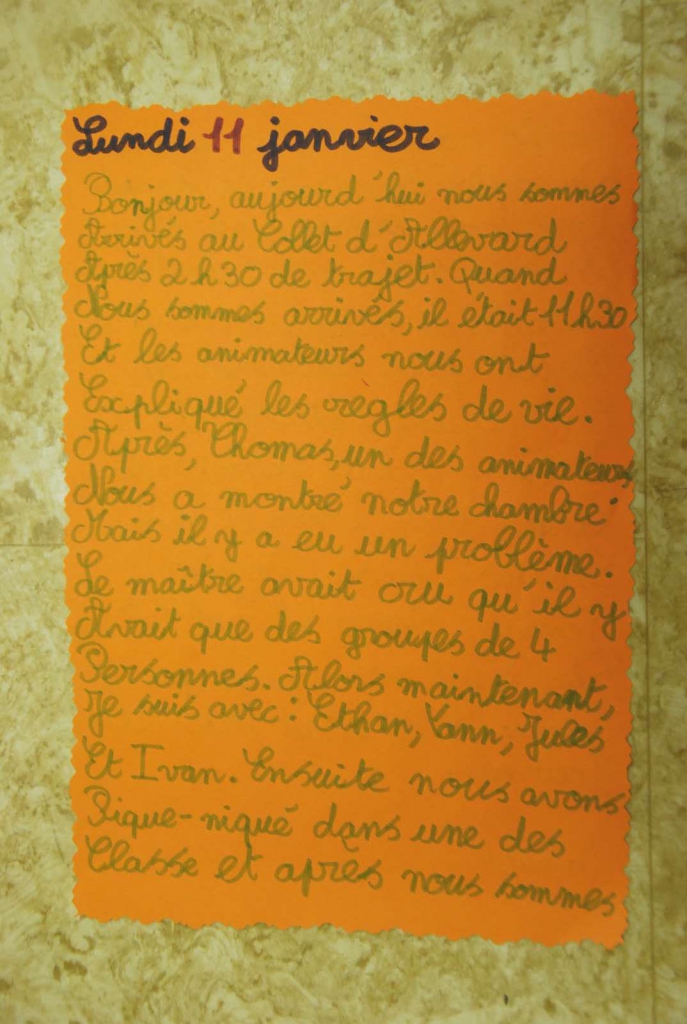 Lundi 11 janvier
Bonjour, aujourd'hui nous sommes
Arrivés au Collet d'Allevard
Après 2h30 de trajet. Quand
Nous sommes arrivés, il était 11h30
Et les animateurs nous ont
Expliqué les regles de vie.
Après, Thomas, un des animateurs
Nous a montré notre chambre
Mais il y a eu un problème.
Le maître avait cru qu'il y
Avait que des groupes de 4
Personnes. Alors maintenant,
Je suis avec : Ethan, Yann, Jules
Et Ivan. Ensuite nous avons
Pique-niqué dans une des
Classe et après nous sommes